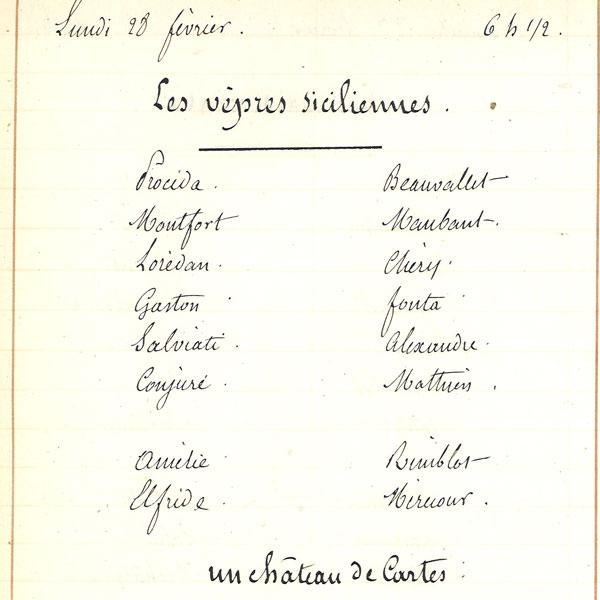 Lundi 28 février. 6 h 1/2.
Les vêpres siciliennes.
Procida. Beauvallet
Montfort Maubant.
Lorédan. Chéry.
Gaston. fonta
Salviati. Alexandre.
Conjuré. Mathien.
Amélie Rimblot
Elfride. Mirecour.
un château de Cartes.